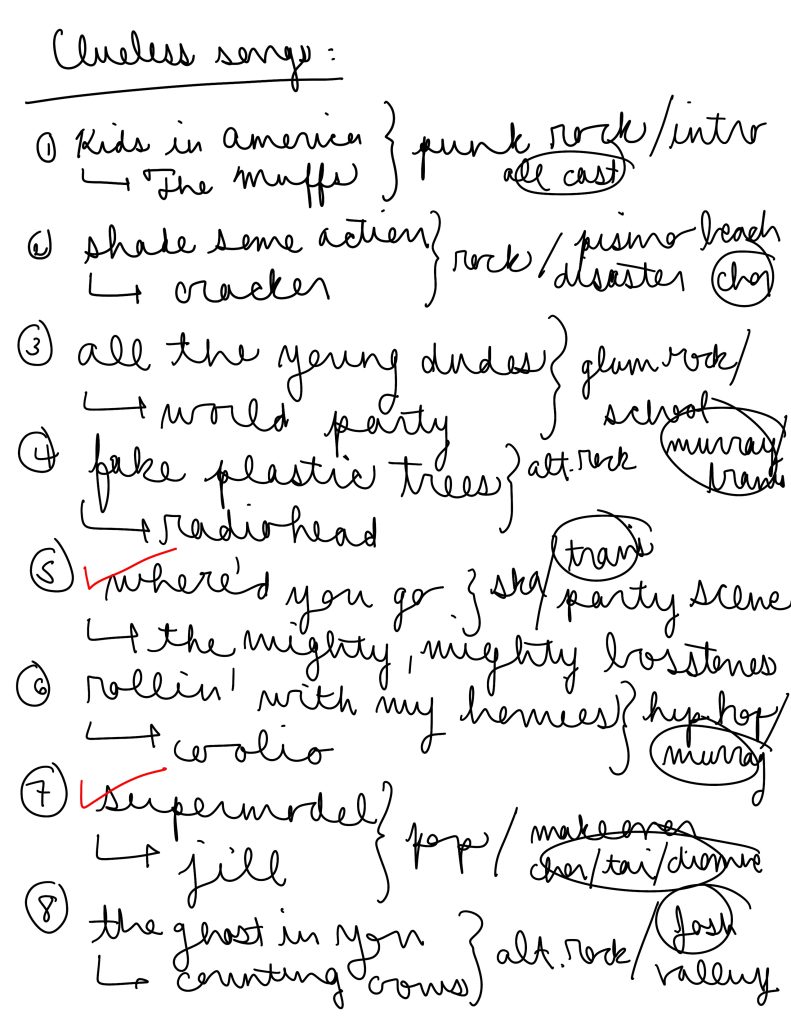 Clueless songs:
① Kids in america } punk rock/intro
↳ The Muffs all cast
② shake some action } rock / pismo beach
↳ cracker disaster cher
③ all the young dudes } glam rock/
↳ world party school murray/
④ fake plastic trees } alt. rock travis
↳ radiohead
⑤ where'd you go } ska/ travis
↳ the mighty, mighty bosstones party scene
⑥ rollin' with my homies } hip-hop/
↳ coolio murray
⑦ supermodel } pop / makeover
↳ jill cher/tai/dionne
⑧ the ghost in you } alt. rock/ josh
↳ counting crows valley